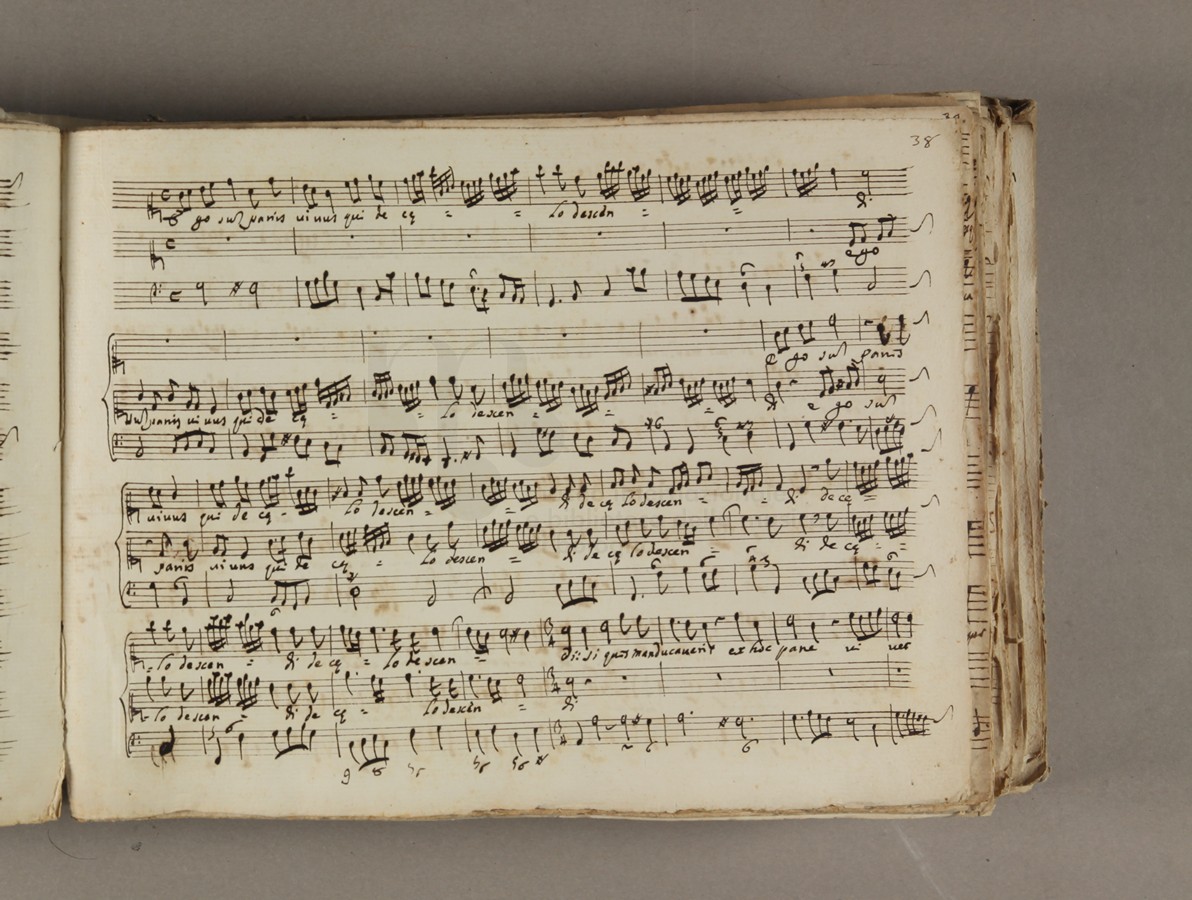 38
ego sum panis vivus qui de cę = = lo descen = = di
ego
ego sum panis
sum panis vivus qui de cę = = lo descen = = = di ego sum
vivus qui de cę - lo descen = = di de cę lo descen = = di de cę =
panis vivus qui de cę = lo descen = di de cę lo descen = di de cę =
= lo descen = di de cę = lo descen = di: si quis manducaverit ex hoc pane vi vet
= lo descen = di de cę = lo descen = di